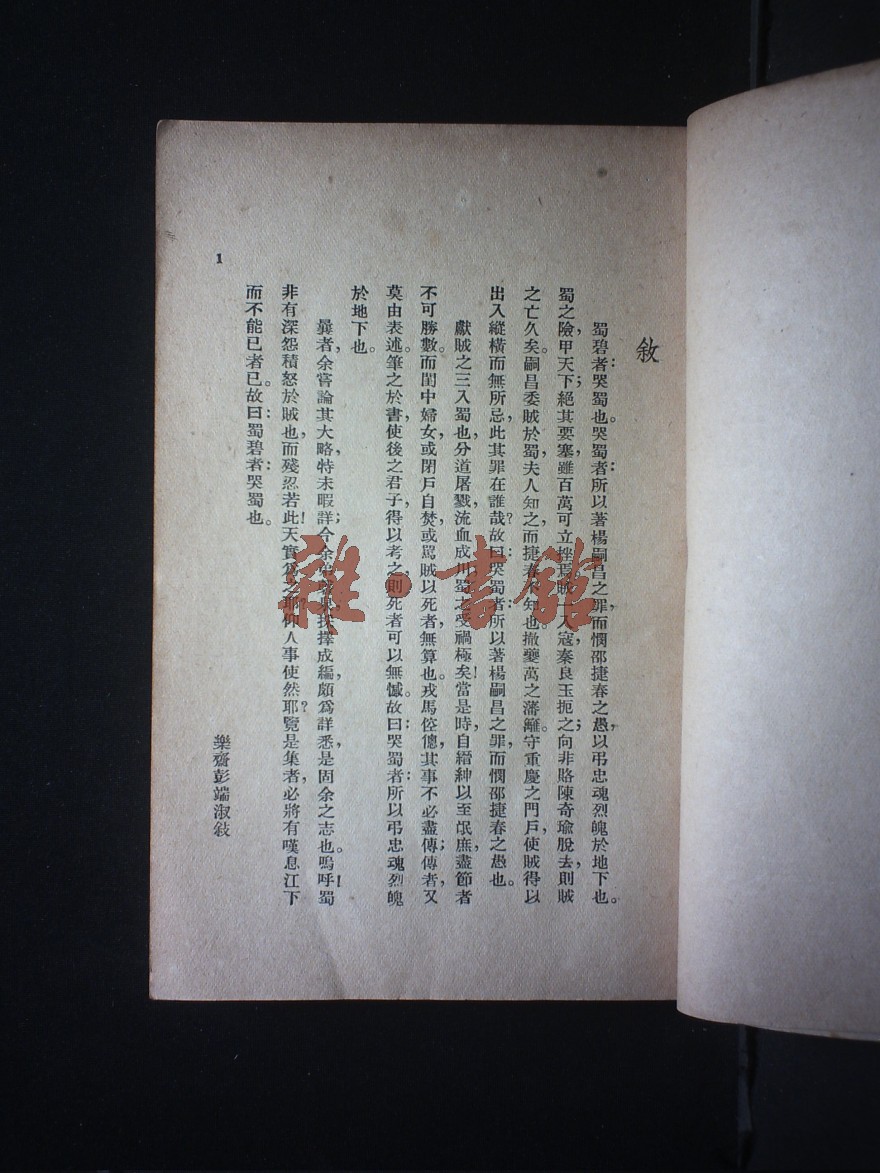 敘
蜀碧者：哭蜀也。哭蜀者：所以著楊嗣昌之罪，而憫邵捷春之愚，以弔忠魂烈魄於地下也。
蜀之險，甲天下；絕其要塞，雖百萬可立挫焉。賊一入寇，秦良玉扼之；向非賂陳奇瑜脫去，則賊
之亡久矣。嗣昌委賊於蜀，夫人知之，而捷春不知也。撤夔萬之藩籬，守重慶之門戶，使賊得以
出入縱橫而無所忌，此其罪在誰哉？故曰：哭蜀者：所以著楊嗣昌之罪，而憫邵捷春之愚也。
獻賊之三入蜀也，分道屠戮，流血成川，蜀之受禍極矣！當是時，自縉紳以至氓庶，盡節者
不可勝數。而閨中婦女，或閉戶自焚，或罵賊以死者，無算也。戎馬倥傯，其事不必盡傳；傳者，又
莫由表述。筆之於書，使後之君子，得以考之，則死者可以無憾。故曰：哭蜀者：所以弔忠魂烈魄
於地下也。
曩者，余嘗論其大略，特未暇詳；今余弟 採擇成編，頗為詳悉，是固余之志也。嗚呼！蜀
非有深怨積怒於賊也，而殘忍若此！天實為之耶？仰人事使然耶？覽是集者，必將有嘆息江下
而不能已者已。故曰：蜀碧者：哭蜀也。
樂齋彭端淑敍
1
雜·書館